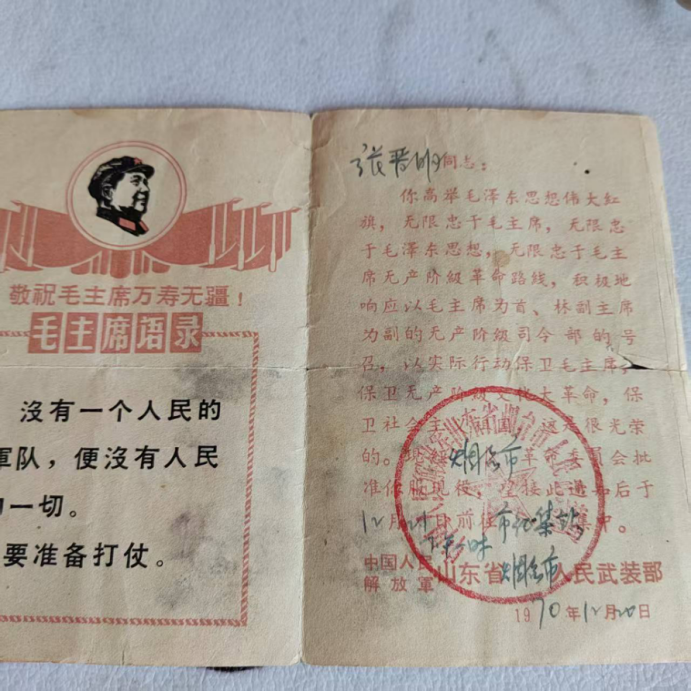 敬祝毛主席万寿无疆！
毛主席语录
沒有一个人民的
軍队，便沒有人民
的一切。
要准备打仗。
张晋明同志：
你高举毛泽东思想伟大红
旗，无限忠于毛主席，无限忠
于毛泽东思想，无限忠于毛主
席无产阶級革命路线，积极地
响应以毛主席为首、林副主席
为副的无产阶級司令部的号
召，以实际行动保卫毛主席，
保卫无产阶級文化大革命，保
卫社会主 这是很光荣
的。 烟台市革命委员会批
准你服现役，望接此通知后于
12月 日前往 市 集 集中。
中国人民
解放軍 山东省烟台市人民武装部
1970年12月20日